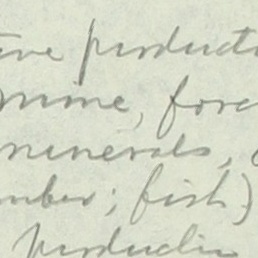 tive producti
mine, fore
minerals,
mber; fish)
productio